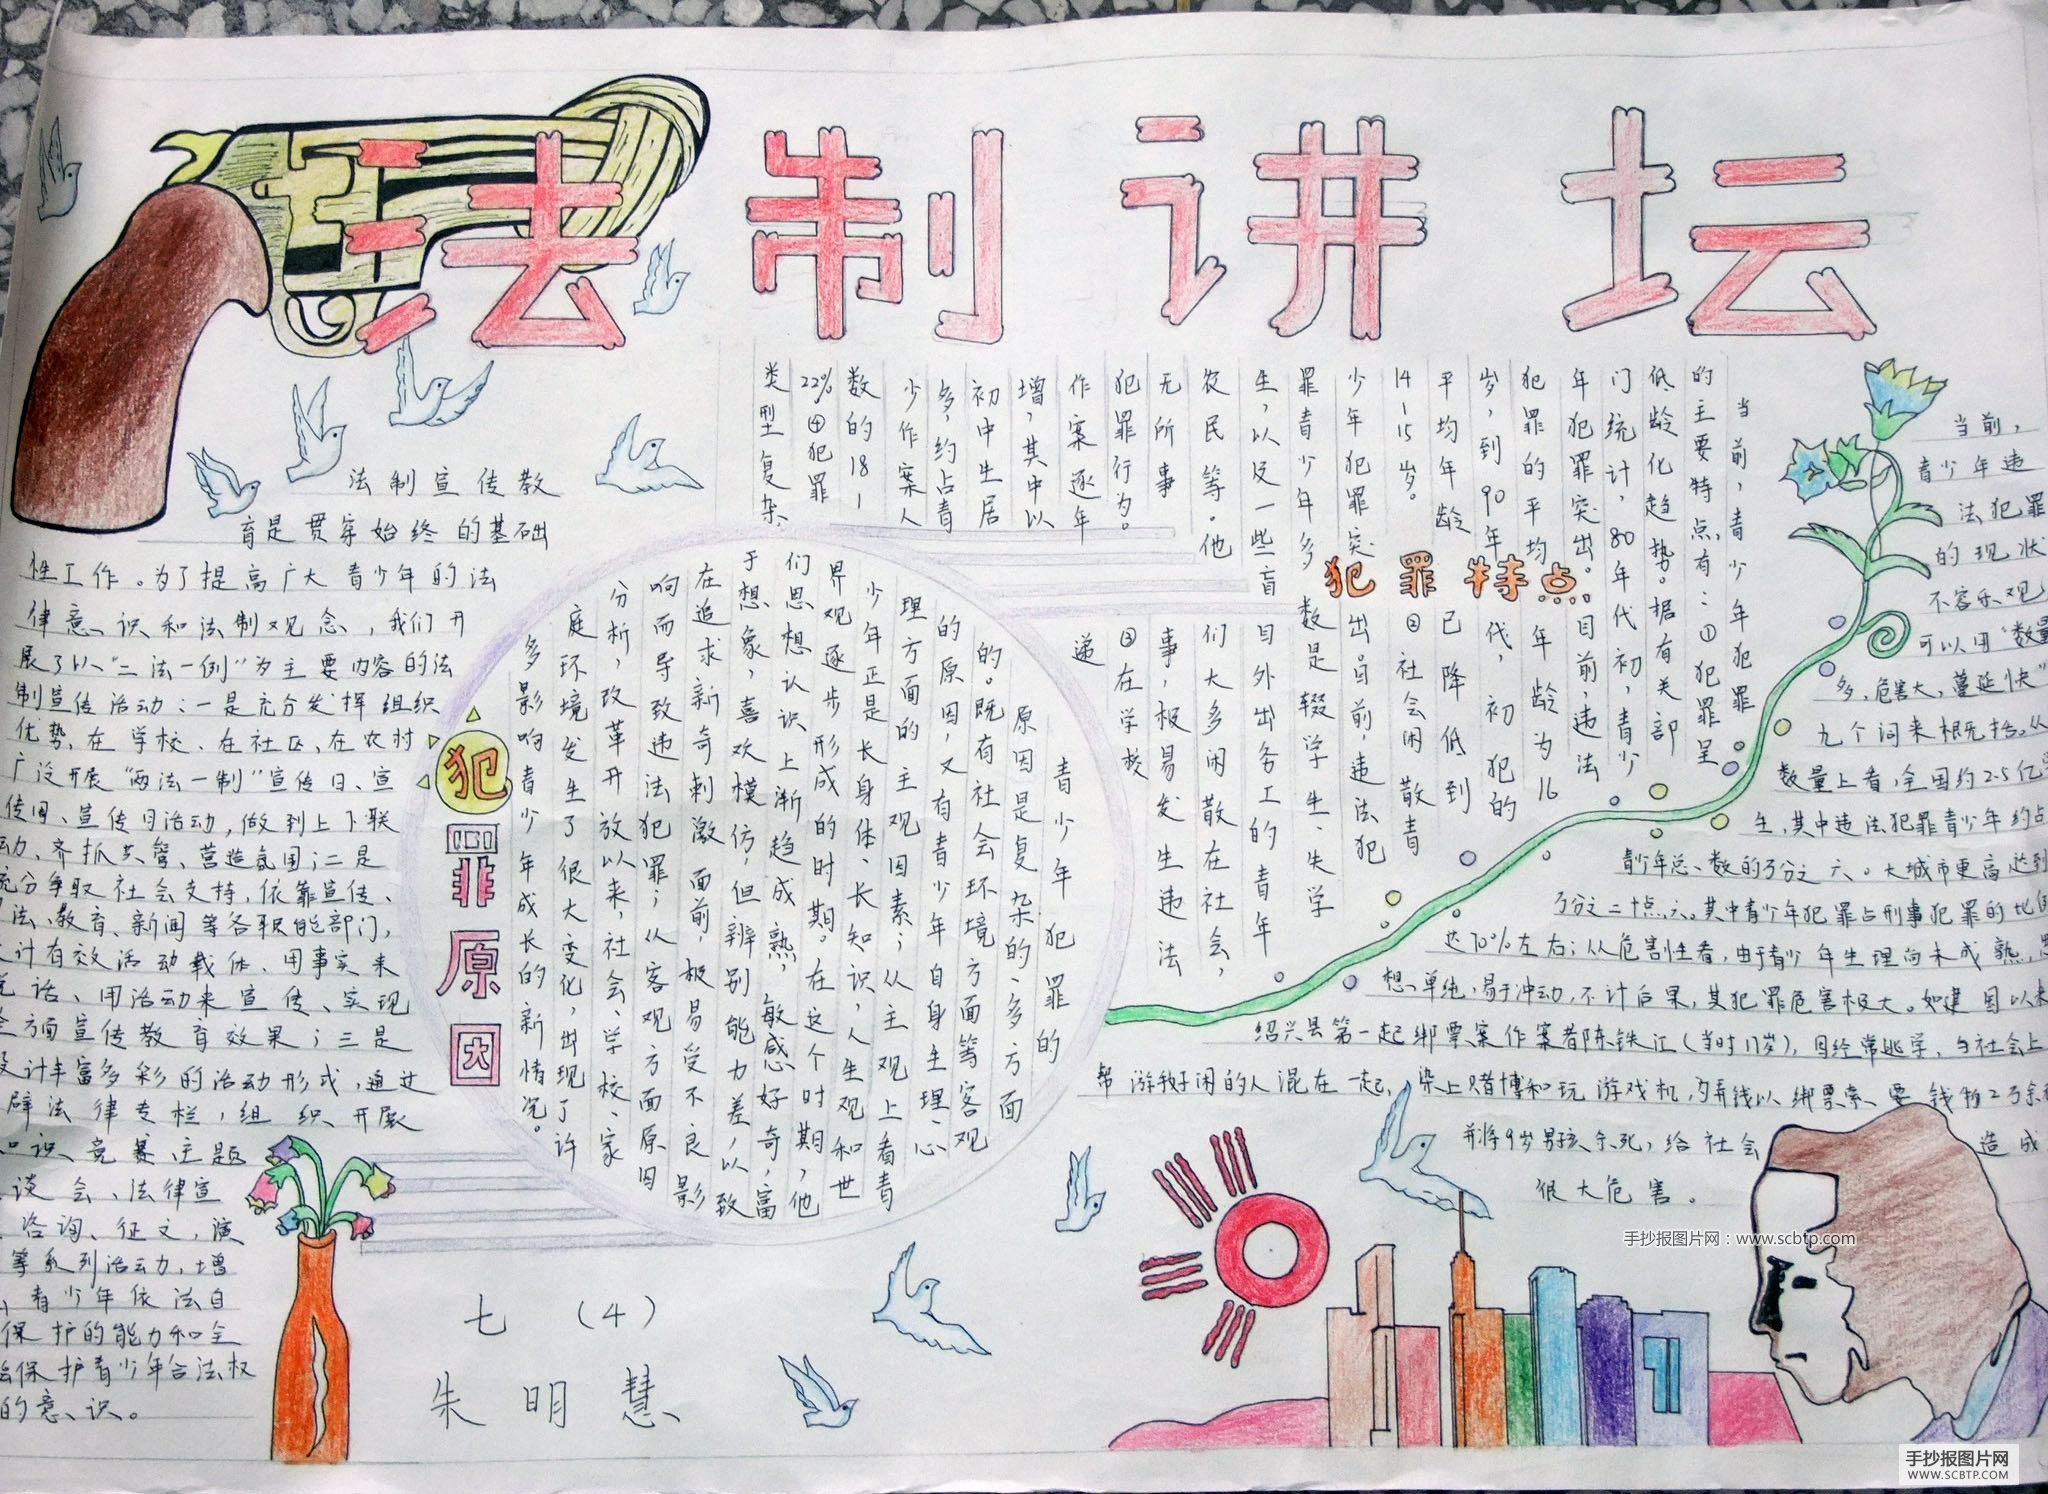 法制讲坛
法制宣传教
育是贯穿始终的基础
性工作。为了提高广大青少年的法
律意识和法制观念，我们开
展了以“二法一例”为主要内容的法
制宣传活动：一是充分发挥组织
优势，在学校、在社区、在农村
广泛开展“两法一制”宣传日、宣
传周、宣传月活动，做到上下联
动、齐抓共管、营造氛围；二是
充分争取社会支持，依靠宣传、
法、教育、新闻等各职能部门，
计有效活动载体、用事实来
说话、用活动来宣传、实现
全方面宣传教育效果；三是
设计丰富多彩的活动形式，通过
辟法律专栏，组织开展
识竞赛主题
谈会、法律宣
咨询、征文，演
等系列活动，增
青少年依法自
保护的能力和全
保护青少年合法权
的意识。
犯罪原因
青少年犯罪的
原因是复杂的、多方面
的。既有社会环境方面等客观
的原因，又有青少年自身生理、心
理方面的主观因素；从主观上看青
少年正是长身体、长知识，人生观和世
界观逐步形成的时期。在这个时期，他
们思想认识上渐趋成熟，敏感好奇，富
于想象，喜欢模仿，但辨别能力差，以致
在追求新奇刺激面前，极易受不良影
响而导致违法犯罪；从客观方面原因
分析，改革开放以来，社会、学校、家
庭环境发生了很大变化，出现了许
多影响青少年成长的新情况。
犯罪特点
当前，青少年犯罪
的主要特点有：①犯罪呈
低龄化趋势。据有关部
门统计，80年代初，青少
年犯罪突出。目前，违法
犯罪的平均年龄为16
岁，到90年代，初犯的
平均年龄已降低到
14-15岁。②社会闲散青
少年犯罪突出。目前，违法犯
罪青少年多数是辍学生、失学
生，以及一些盲目外出务工的青年
农民等。他们大多闲散在社会，
无所事事，极易发生违法
犯罪行为。③在学校
作案逐年递
增，其中以
初中生居
多，约占青
少作案人
数的18-
22%④犯罪
类型复杂
当前，
青少年违
法犯罪
的现状
不容乐观
可以用“数量
多，危害大，蔓延快”
九个词来概括。从
数量上看，全国约2.5亿学
生，其中违法犯罪青少年约占
青少年总数的万分之六。大城市更高达到
万分之二十点六。其中青少年犯罪占刑事犯罪的比例
达70%左右；从危害性看，由于青少年生理尚未成熟，思
想单纯，易于冲动，不计后果，其犯罪危害极大。如建国以来
绍兴县第一起绑票案作案者陈铁江（当时17岁），因经常逃学，与社会上
帮游手好闲的人混在一起，染上赌博和玩游戏机，为弄钱以绑票索要钱物2万余
并将9岁男孩杀死，给社会造成
很大危害。
七（4）
朱明慧
手抄报图片网：www.scbtp.com
手抄报图片网
WWW.SCBTP.COM